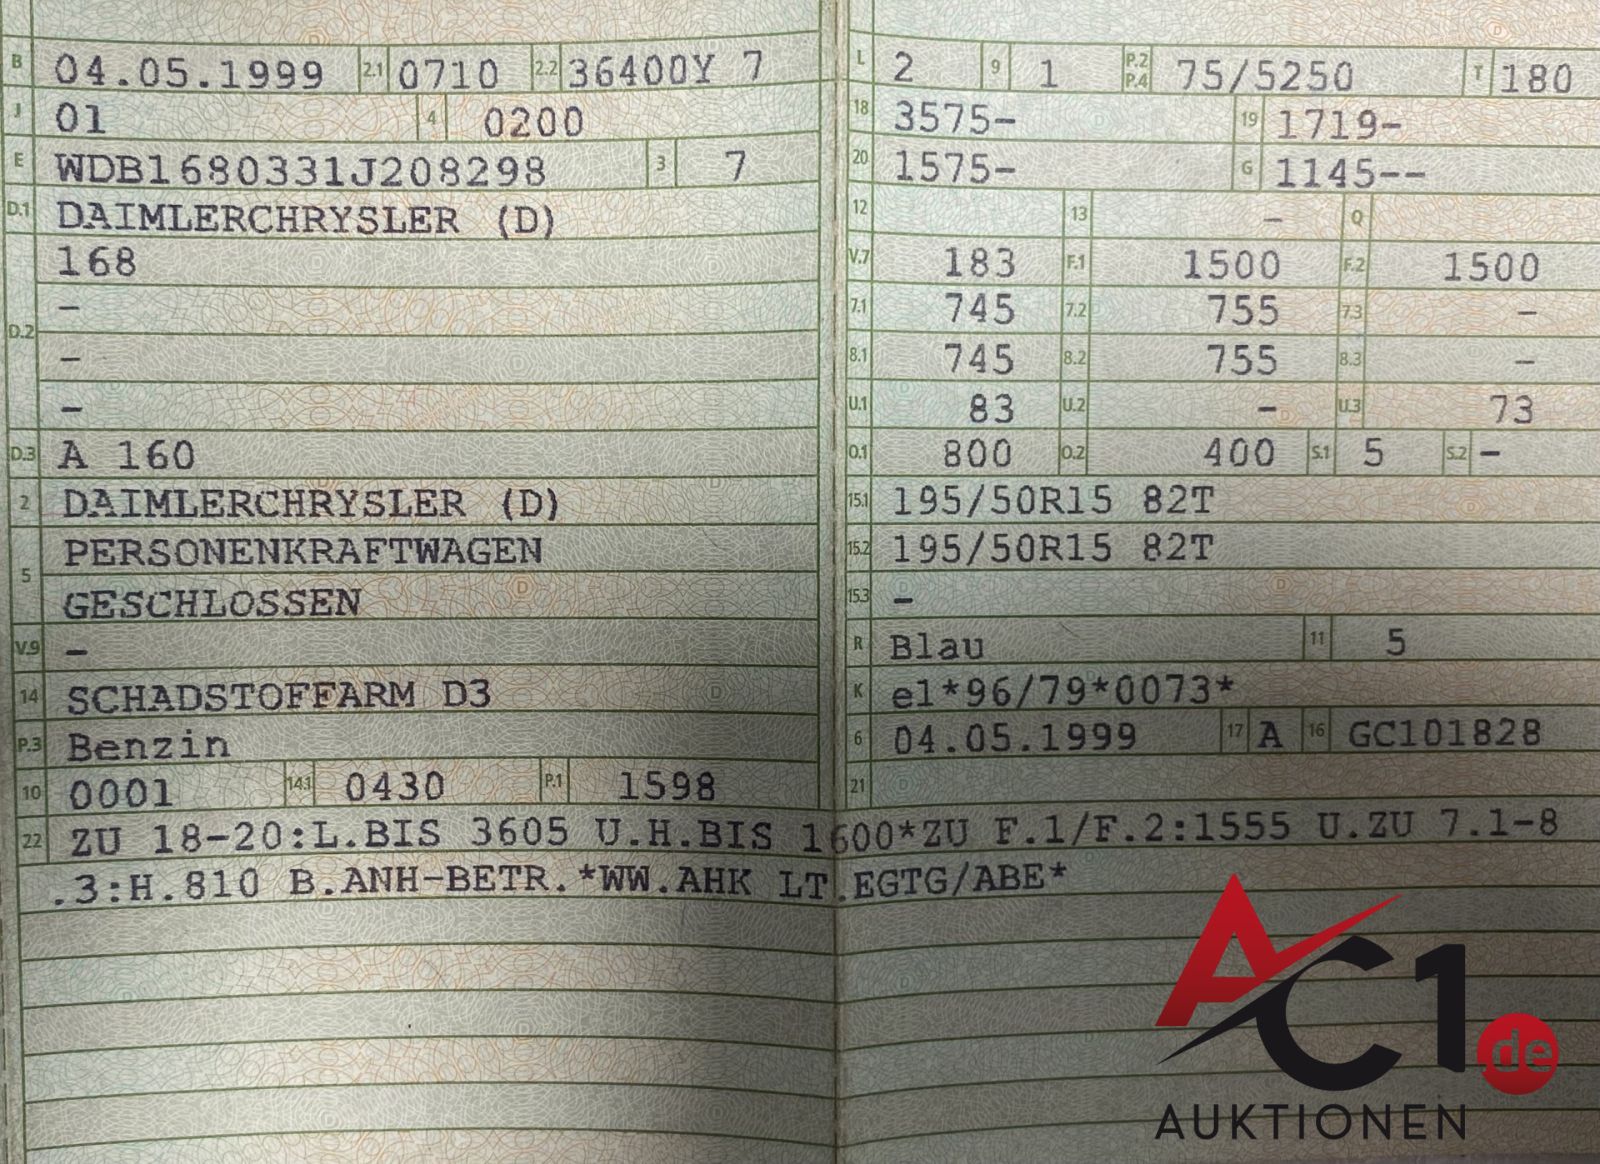 B 04.05.1999 2.1 0710 2.2 36400Y 7
J 01 4 0200
E WDB1680331J208298 3 7
D.1 DAIMLERCHRYSLER (D)
168
–
D.2
–
–
D.3 A 160
2 DAIMLERCHRYSLER (D)
PERSONENKRAFTWAGEN
5
GESCHLOSSEN
V.9 –
14 SCHADSTOFFARM D3
P.3 Benzin
10 0001 14.1 0430 P.1 1598
L 2 9 1 P.2 P.4 75/5250 T 180
18 3575– 19 1719–
20 1575– G 1145––
12 13 – Q
V.7 183 F.1 1500 F.2 1500
7.1 745 7.2 755 7.3 –
8.1 745 8.2 755 8.3 –
U.1 83 U.2 – U.3 73
O.1 800 O.2 400 S.1 5 S.2 –
15.1 195/50R15 82T
15.2 195/50R15 82T
15.3 –
R Blau 11 5
K e1*96/79*0073*
6 04.05.1999 17 A 16 GC101828
21
22 ZU 18-20:L.BIS 3605 U.H.BIS 1600*ZU F.1/F.2:1555 U.ZU 7.1-8
.3:H.810 B.ANH-BETR.*WW.AHK LT.EGTG/ABE*
AC1.de
AUKTIONEN